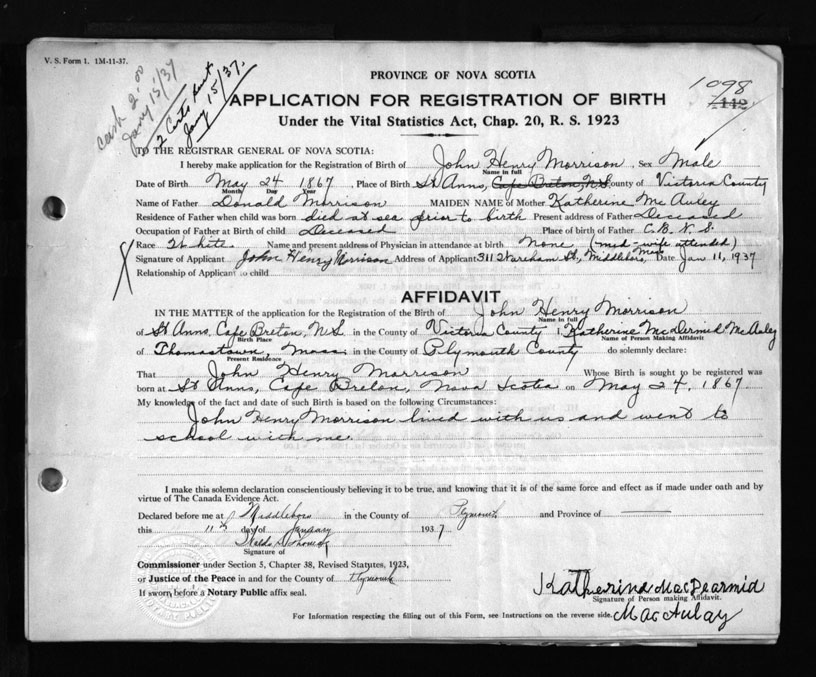 V. S. Form 1. 1M-11-37.
cash 2.00
Jany 15/37
2 Certs sent
Jany 15/37.
PROVINCE OF NOVA SCOTIA
1098
APPLICATION FOR REGISTRATION OF BIRTH
Under the Vital Statistics Act, Chap. 20, R. S. 1923
TO THE REGISTRAR GENERAL OF NOVA SCOTIA:
I hereby make application for the Registration of Birth of John Henry Morrison, Sex Male
Name in full
Date of Birth May 24 1867, Place of Birth St Anns, Cape Breton, N.S. County of Victoria County
Month Day Year
Name of Father Donald Morrison MAIDEN NAME of Mother Katherine McAuley
Residence of Father when child was born died at sea prior to birth Present address of Father Deceased
Occupation of Father at Birth of child Deceased Place of birth of Father C.B. N.S.
Race White Name and present address of Physician in attendance at birth None (mid-wife attended)
Signature of Applicant John Henry Morrison Address of Applicant 311 Wareham St., Middleboro, Mass Date Jan 11, 1937
Relationship of Applicant to child
AFFIDAVIT
IN THE MATTER of the application for the Registration of Birth of John Henry Morrison
Name in full
of St Anns, Cape Breton, N.S. in the County of Victoria County I, Katherine McDermid McAuley
Birth Place Name of Person Making Affidavit
of Thomastown, Mass. in the County of Plymouth County do solemnly declare:
Present Residence
That John Henry Morrison Whose Birth is sought to be registered was
born at St Anns, Cape Breton, Nova Scotia on May 24, 1867.
My knowledge of the fact and date of such Birth is based on the following Circumstances:
John Henry Morrison lived with us and went to
school with me.
I make this solemn declaration conscientiously believing it to be true, and knowing that it is of the same force and effect as if made under oath and by
virtue of The Canada Evidence Act.
Declared before me at Middleboro in the County of Plymouth and Province of
this 11th day of January 1937
Signature of
Commissioner under Section 5, Chapter 38, Revised Statutes, 1923,
or Justice of the Peace in and for the County of Plymouth
If sworn before a Notary Public affix seal.
Katherine MacDearmid
Signature of Person making Affidavit.
MacAulay
For Information respecting the filling out of this Form, see Instructions on the reverse side.